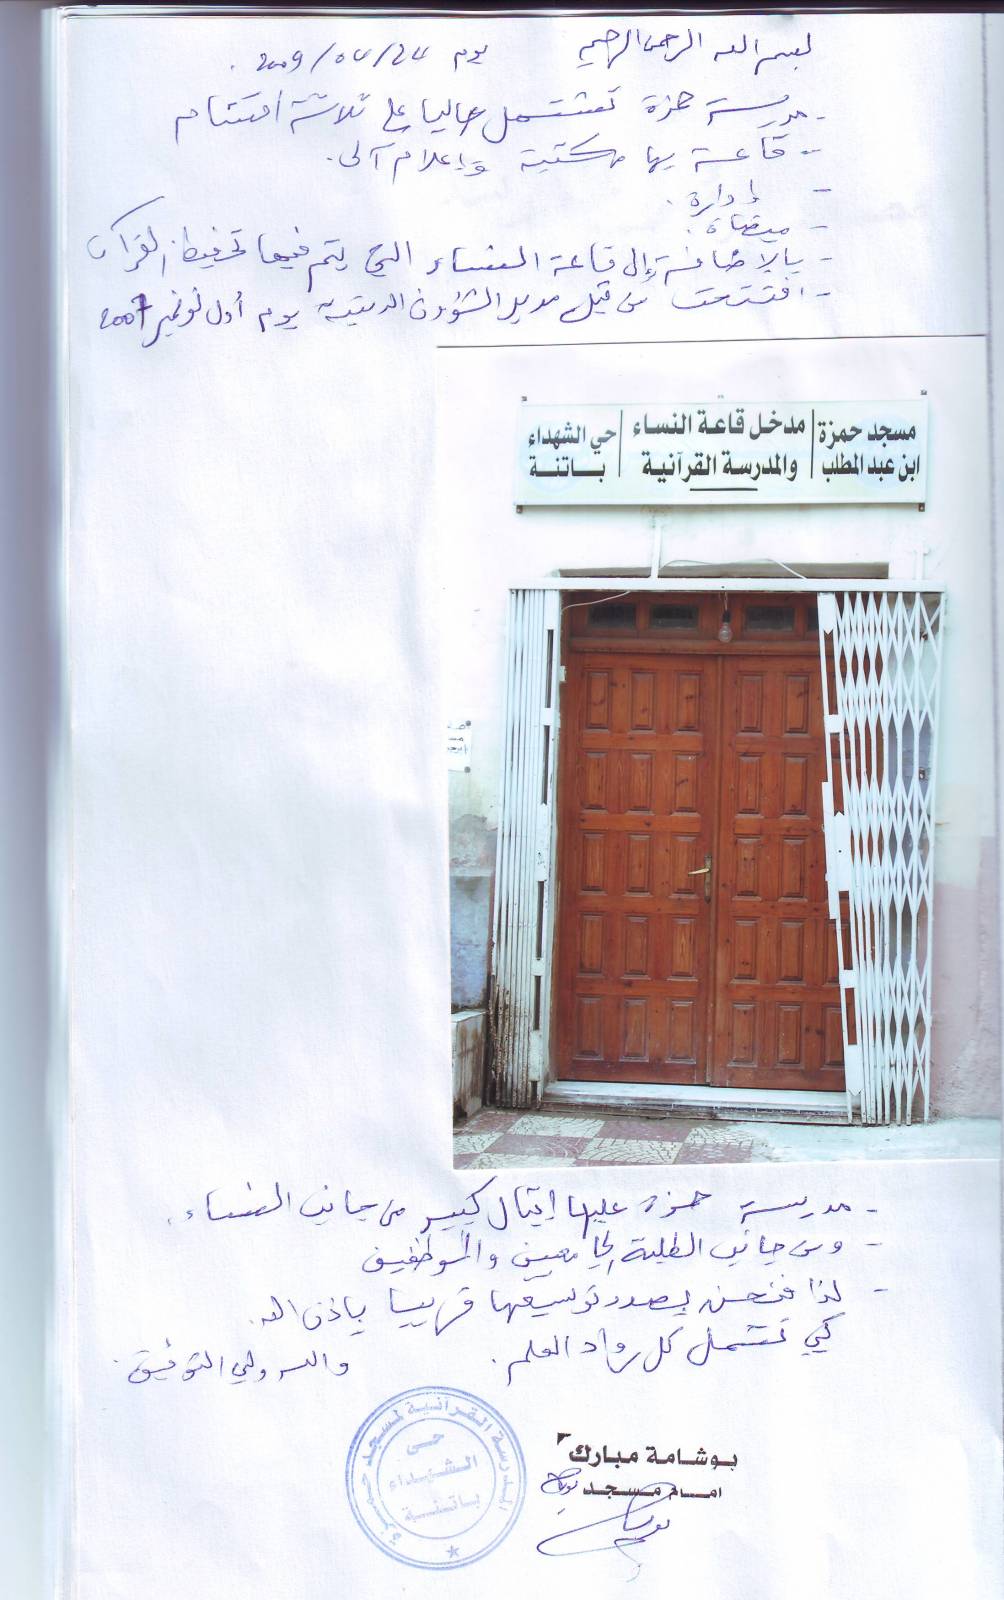 بسم الله الرحمن الرحيم يوم 24/04/2009.
- مدرسة حمزة تشتمل حاليا على ثلاثة أقسام
- قاعة بها مكتبة وإعلام آلي.
- إدارة.
- ميضاة.
- بالإضافة إلى قاعة النساء التي يتم فيها تحفيظ القرآن
- افتتحت من قبل مدير الشؤون الدينية يوم أول نوفمبر 2007
مسجد حمزة | مدخل قاعة النساء | حي الشهداء
ابن عبد المطلب | والمدرسة القرآنية | باتنة
- مدرسة حمزة عليها إقبال كبير من جانب النساء.
- ومن جانب الطلبة الجامعيين والموظفين
- لذا فنحن بصدد توسيعها قريبا بإذن الله.
كي تشمل كل رواد العلم. والله ولي التوفيق.
بوشامة مبارك
امام مسجد
المدرسة القرآنية لمسجد حمزة
حي
الشهداء
باتنة